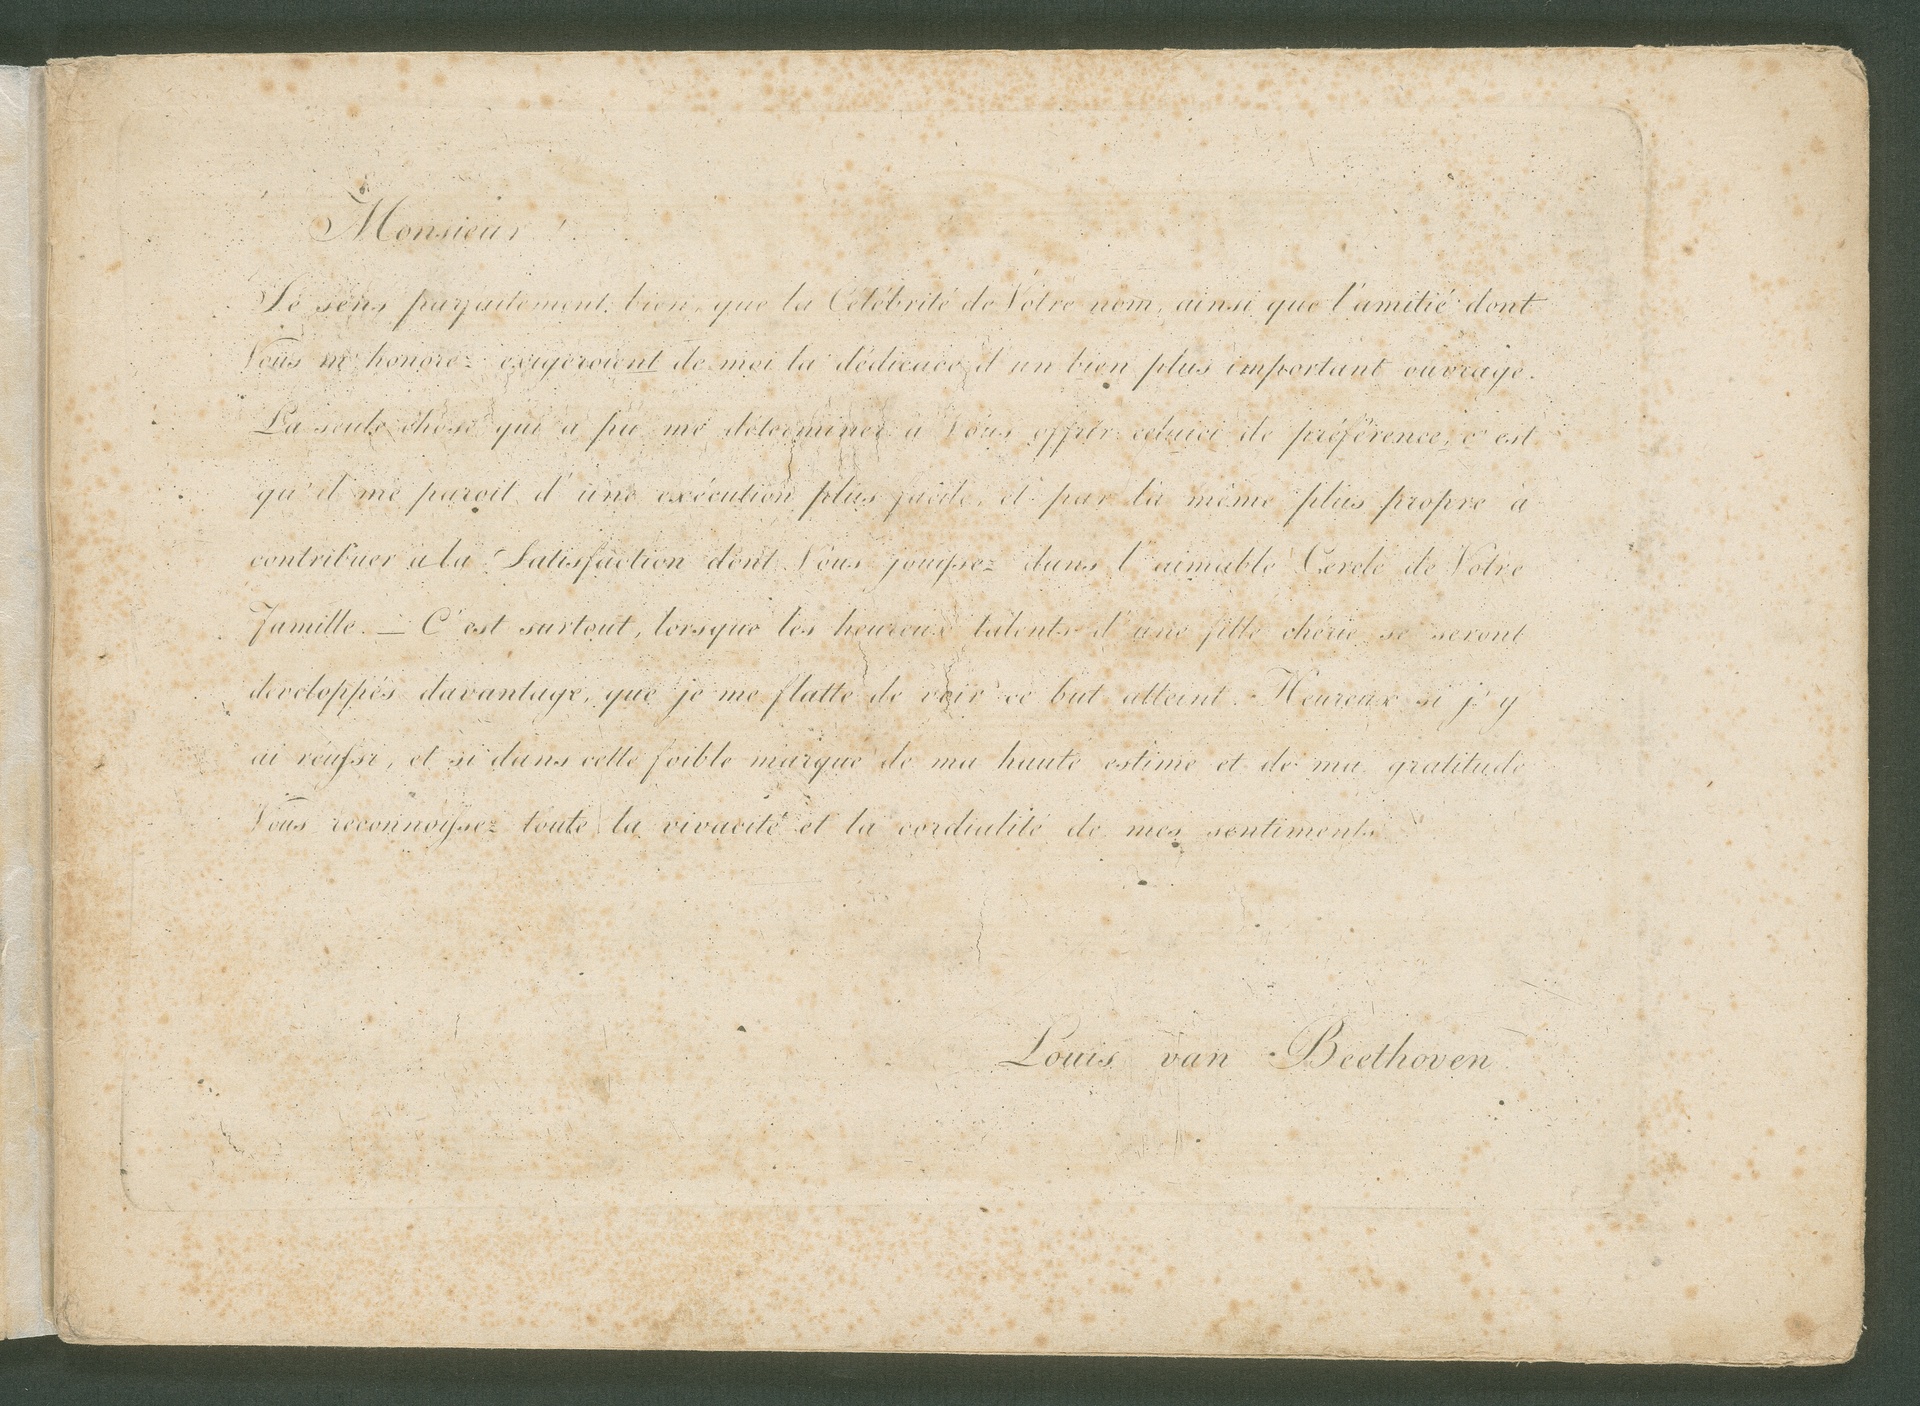 Monsieur !
Je sens parfaitement bien, que la Célébrité de Votre nom, ainsi que l'amitié dont
Vous m'honorez exigeroient de moi la dédicace d'un bien plus important ouvrage.
La seule chose qui a pu me déterminer à Vous offrir celuici de préférence, c'est
qu'il me paroit d'une exécution plus facile, et par la même plus propre à
contribuer a la Satisfaction dont Vous jouissez dans l'aimable Cercle de Votre
Famille. — C'est surtout, lorsque les heureux talents d'une fille chérie se seront
developpés davantage, que je me flatte de voir ce but atteint. Heureux si j'y
ai reussi, et si dans cette foible marque de ma haute estime et de ma gratitude
Vous reconnoissez toute la vivacité et la cordialité de mes sentiments.
Louis van Beethoven